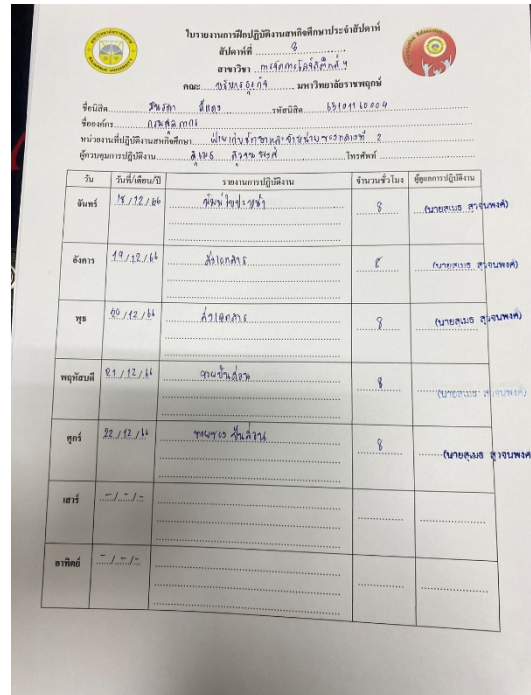 ใบรายงานการฝึกปฏิบัติงานสหกิจศึกษาประจำสัปดาห์
สัปดาห์ที่ 8
สาขาวิชา การจัดการโลจิสติกส์ ฯ
คณะ บริหารธุรกิจ มหาวิทยาลัยราชพฤกษ์
ชื่อนิสิต รหัสนิสิต
ชื่อองค์กร กรมศุลกากร
หน่วยงานที่ปฏิบัติงานสหกิจศึกษา ฝ่ายเก็บรักษาและจำหน่ายของกลางที่ 2
ผู้ควบคุมการปฏิบัติงาน สุเมธ สุวจนพงศ์ โทรศัพท์
วัน วันที่/เดือน/ปี รายงานการปฏิบัติงาน จำนวนชั่วโมง ผู้ดูแลการปฏิบัติงาน
จันทร์ 18/12/66 พิมพ์ใบปะหน้า 8 (นายสุเมธ สุวจนพงศ์)
อังคาร 19/12/66 ส่งเอกสาร 8 (นายสุเมธ สุวจนพงศ์)
พุธ 20/12/66 ส่งเอกสาร 8 (นายสุเมธ สุวจนพงศ์)
พฤหัสบดี 21/12/66 8 (นายสุเมธ สุวจนพงศ์)
ศุกร์ 22/12/66 8 (นายสุเมธ สุวจนพงศ์)
เสาร์ -/-/-
อาทิตย์ -/-/-